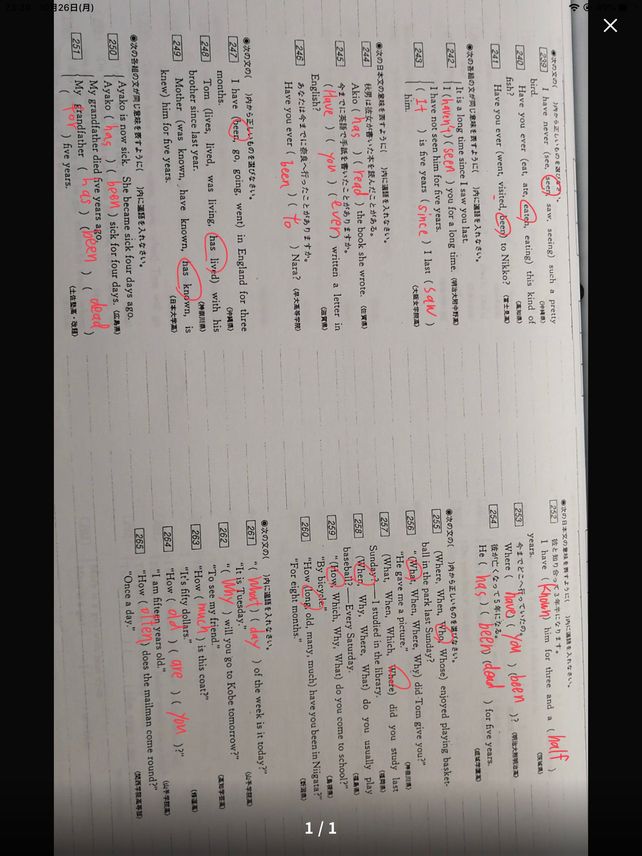 10月26日(月)
◉次の文の( )内から正しいものを選びなさい。
239 I have never (see, seen, saw, seeing) such a pretty
bird. (沖縄県)
240 Have you ever (eat, ate, eaten, eating) this kind of
fish? (高知県)
241 Have you ever (went, visited, been) to Nikko? (富士見高)
◉次の各組の文が同じ意味を表すように( )内に適語を入れなさい。
242 { It is a long time since I saw you last.
I (haven't) (seen) you for a long time. (明治大附中野高)
243 { I have not seen him for five years.
( It ) is five years (since) I last (saw)
him. (大阪女学院高)
◉次の日本文の意味を表すように( )内に適語を入れなさい。
244 秋男は彼女が書いた本を読んだことがある。
Akio (has) (read) the book she wrote. (佐賀県)
245 今までに英語で手紙を書いたことがありますか。
(Have) (you) (ever) written a letter in
English? (滋賀県)
246 あなたは今までに奈良へ行ったことがありますか。
Have you ever (been) (to) Nara?
◉次の文の( )内から正しいものを選びなさい。
247 I have (been, go, going, went) in England for three
months. (沖縄県)
248 Tom (lives, lived, was living, has lived) with his
brother since last year. (神奈川県)
249 Mother (was known, have known, has known, is
knew) him for five years. (日本大学高)
◉次の各組の文が同じ意味を表すように( )内に適語を入れなさい。
250 { Ayako is now sick. She became sick four days ago.
Ayako (has) (been) sick for four days. (広島県)
251 { My grandfather died five years ago.
My grandfather (has) (been) (dead)
(for) five years. (土佐塾高・改題)
◉次の日本文の意味を表すように( )内に適語を入れなさい。
252 彼と知り合って3年半になります。
I have (known) him for three and a (half)
years. (茨城県)
253 今までどこへ行っていたの。
Where (have) (you) (been)? (明治大附明治高)
254 彼が亡くなって5年になる。
He (has) (been) (dead) for five years. (成城学園高)
◉次の文の( )内から正しいものを選びなさい。
255 (Where, When, Who, Whose) enjoyed playing basket-
ball in the park last Sunday? (神奈川県)
256 "(What, When, Where, Why) did Tom give you?"
"He gave me a picture."
257 (What, When, Which, Where) did you study last
Sunday?—I studied in the library. (福岡県)
258 (When, Why, Where, What) do you usually play
baseball?—Every Saturday. (福島県)
259 "(How, Which, Why, What) do you come to school?"
"By bicycle." (島根県)
260 "How (long, old, many, much) have you been in Niigata?"
"For eight months." (新潟県)
◉次の文の( )内に適語を入れなさい。
261 "(What) (day) of the week is it today?"
"It is Tuesday." (山手学院高)
262 "(Why) will you go to Kobe tomorrow?"
"To see my friend." (高知学芸高)
263 "How (much) is this coat?"
"It's fifty dollars."
264 "How (old) (are) (you)?"
"I am fifteen years old." (山手学院高)
265 "How (often) does the mailman come round?"
"Once a day." (関西学院高等部)
1 / 1